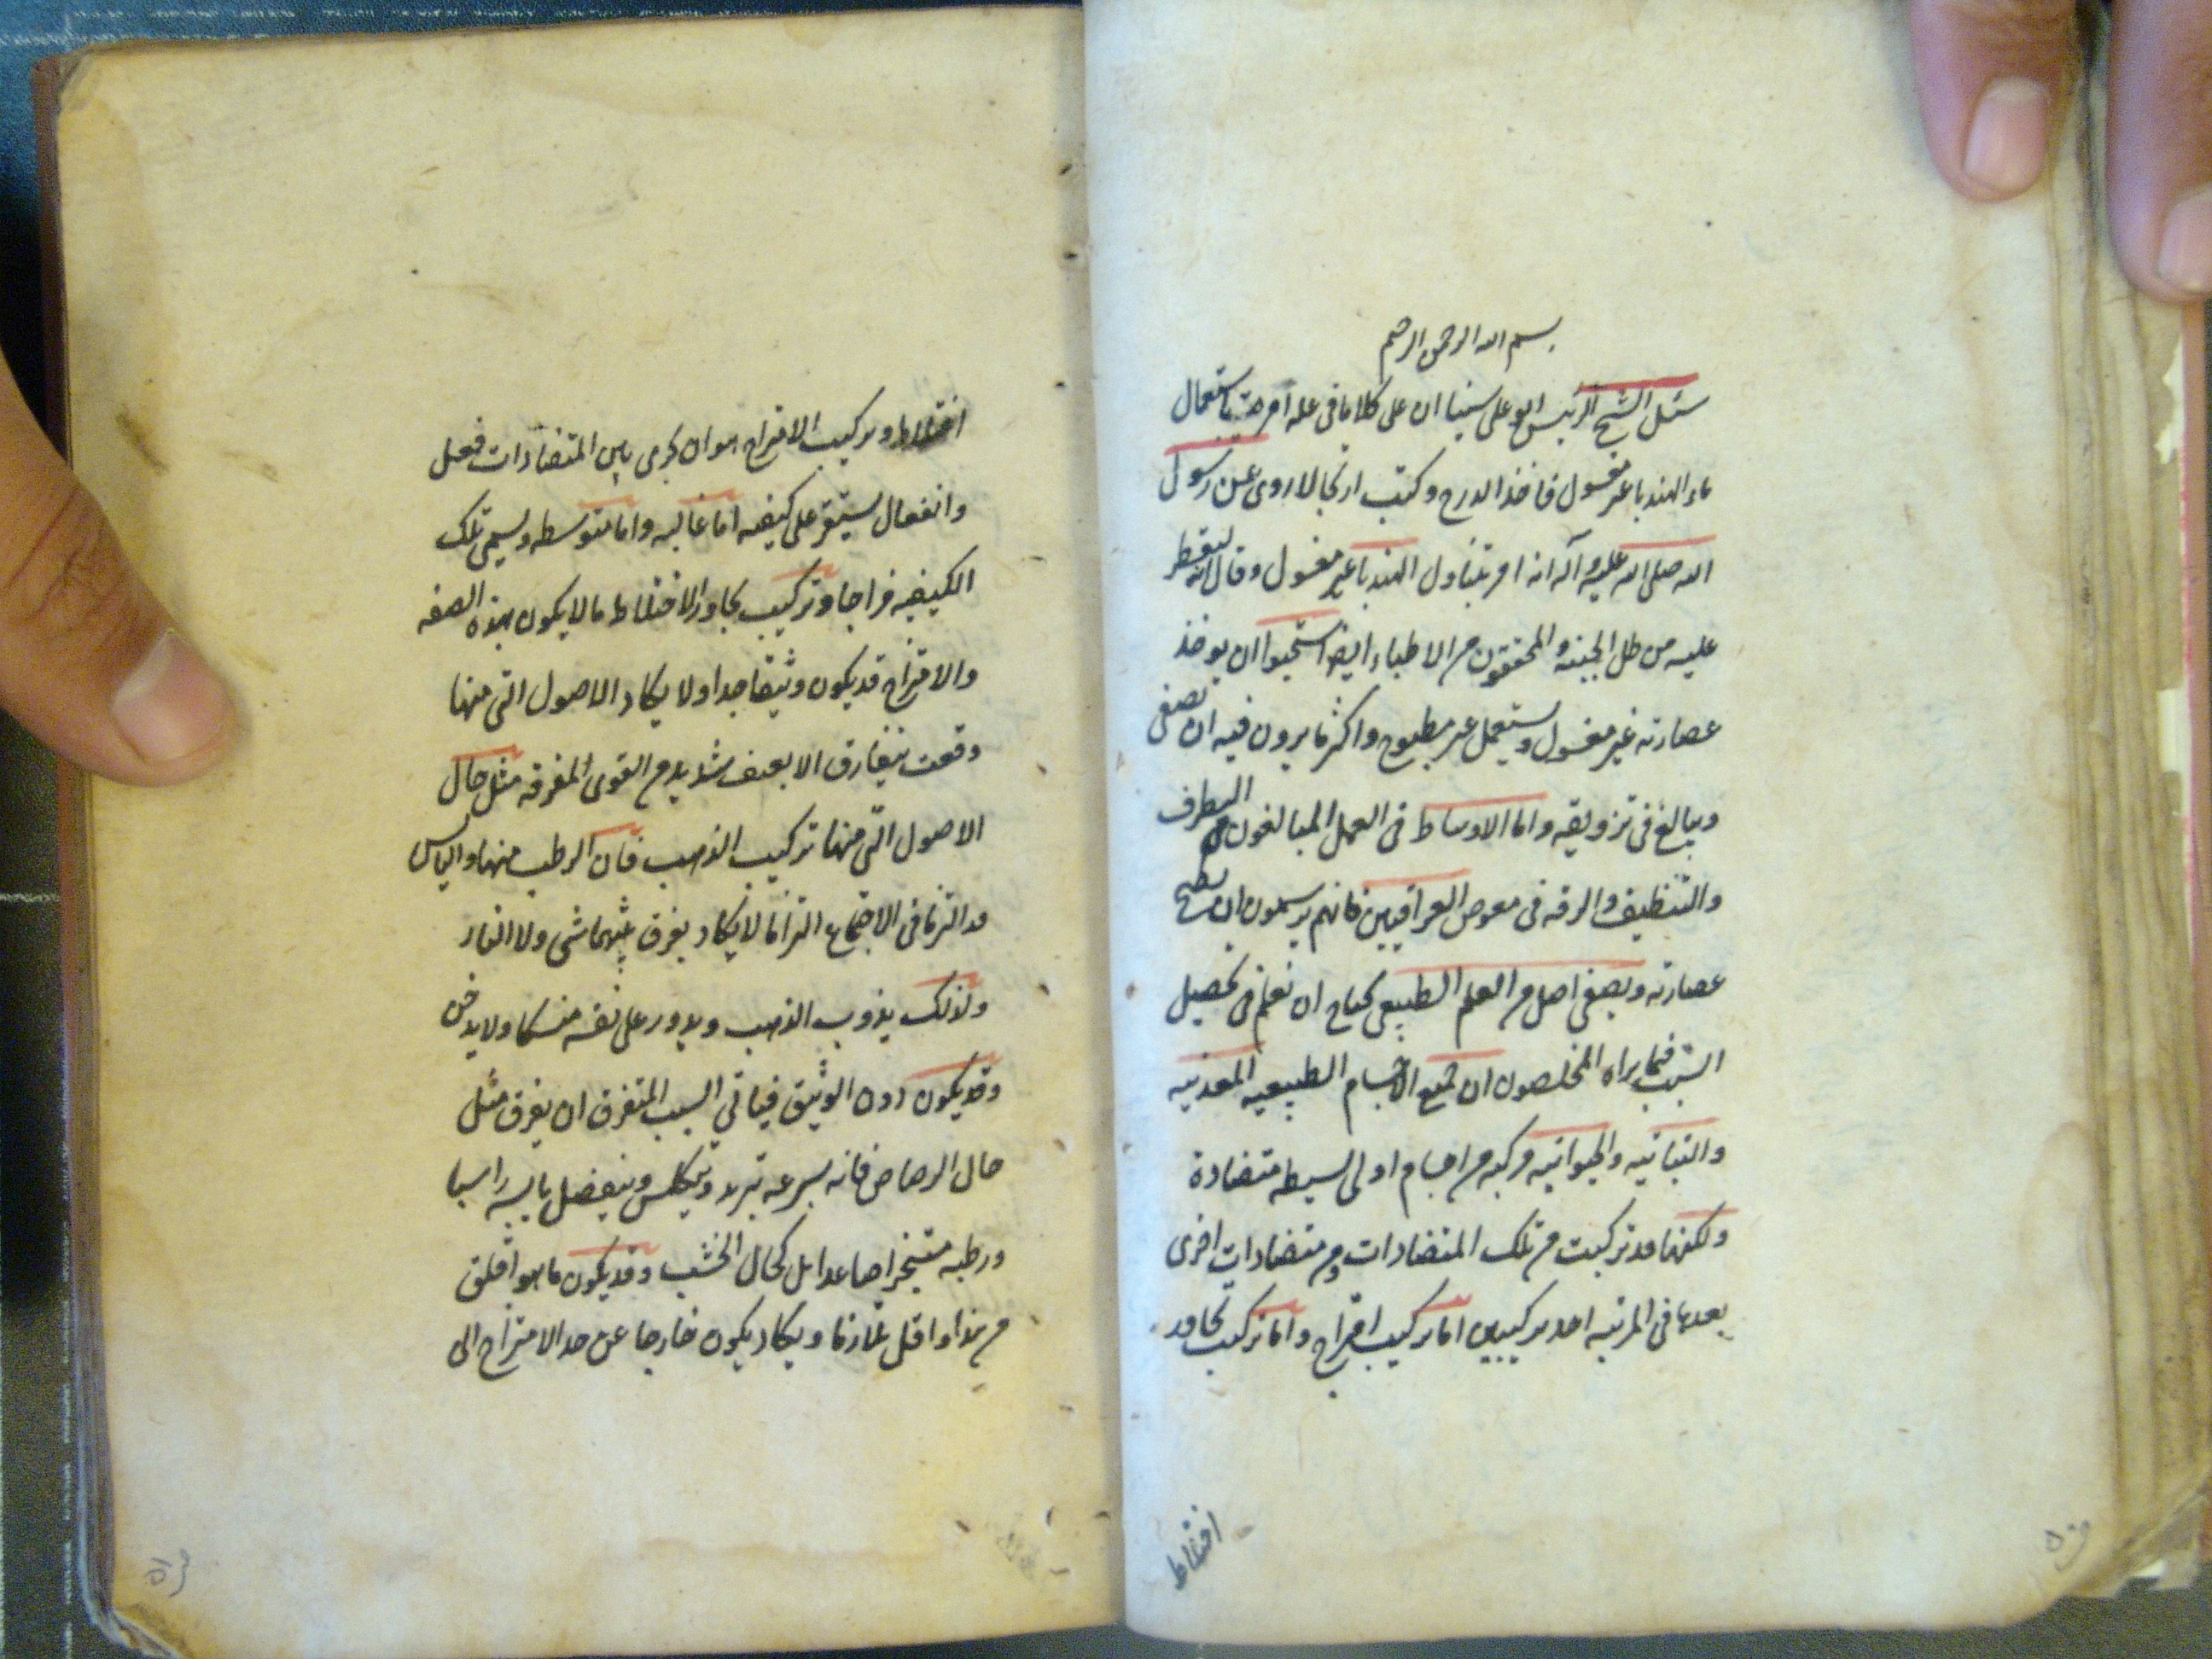 بسم الله الرحمن الرحیم
سئل الشیخ الرئیس ابو علی سینا ان علی کلاما فی عله امره باستعمال
ماء الهندبا غیر مغسول فاخذ الدرج و کتب ارتجالا روی عن رسول
الله صلی الله علیه و آله انه امر بتناول الهندبا غیر مغسول و قال انه لیقطر
علیه من طل الجنة و المحققون من الاطباء ایضا استحبوا ان یوخذ
عصارته غیر مغسول و یستعمل غیر مطبوخ و اکثر ما یرون فیه ان یصفی
و یبالغ فی تزویقه و اما الاوساط فی العمل المبالغون فی التطرف
و التنظیف و الرقه فی معوض العراقیین فانهم یرسمون ان یطبخ
عصارته و یصفی اصل من العلم الطبیعی یحتاج ان نعلم فی تحصیل
السبب فیما یراه المخلصون ان جمیع الاجسام الطبیعیه المعدنیه
و النباتیه و الحیوانیه مرکبه من اجسام اولی بسیطه متضادة
و لکنها قد ترکبت من تلک المتضادات و من متضادات اخری
بعدها فی المرتبه احد ترکیبین اما ترکیب امتزاج و اما ترکیب تجاور
اختلاط
اختلاط و ترکیب الامتزاج هو ان یجری بین المتضادات فعل
و انفعال یستقر علی کیفیه اما غالبه و اما متوسطه و یسمی تلک
الکیفیه مزاجا و ترکیب تجاور الاختلاط ما لا یکون بهذه الصفه
و الامتزاج قد یکون وثیقا جدا و لا یکاد الاصول التی منها
وقعت یتفارق الا بعنف شدید من القوی المفرقه مثل حال
الاصول التی منها ترکیب الذهب فان الرطب منها و الیابس
قد التزما فی الاجتماع التزاما لا یکاد یفرق بینهما شی و لا النار
و لذلک یذوب الذهب و یدور علی نفسه متسکا و لا یدخن
و قد یکون دون الوثیق فیاتی السبب المتفرق ان یفرق مثل
حال الرصاص فانه بسرعه تبرد و یتکلس و ینفصل یابسه راسبا
و رطبه متبخرا صاعدا بل کحال الخشب و قد یکون ما هو اقلق
من هذا و اقل تلازما و یکاد یکون خارجا عن حد الامتزاج الی